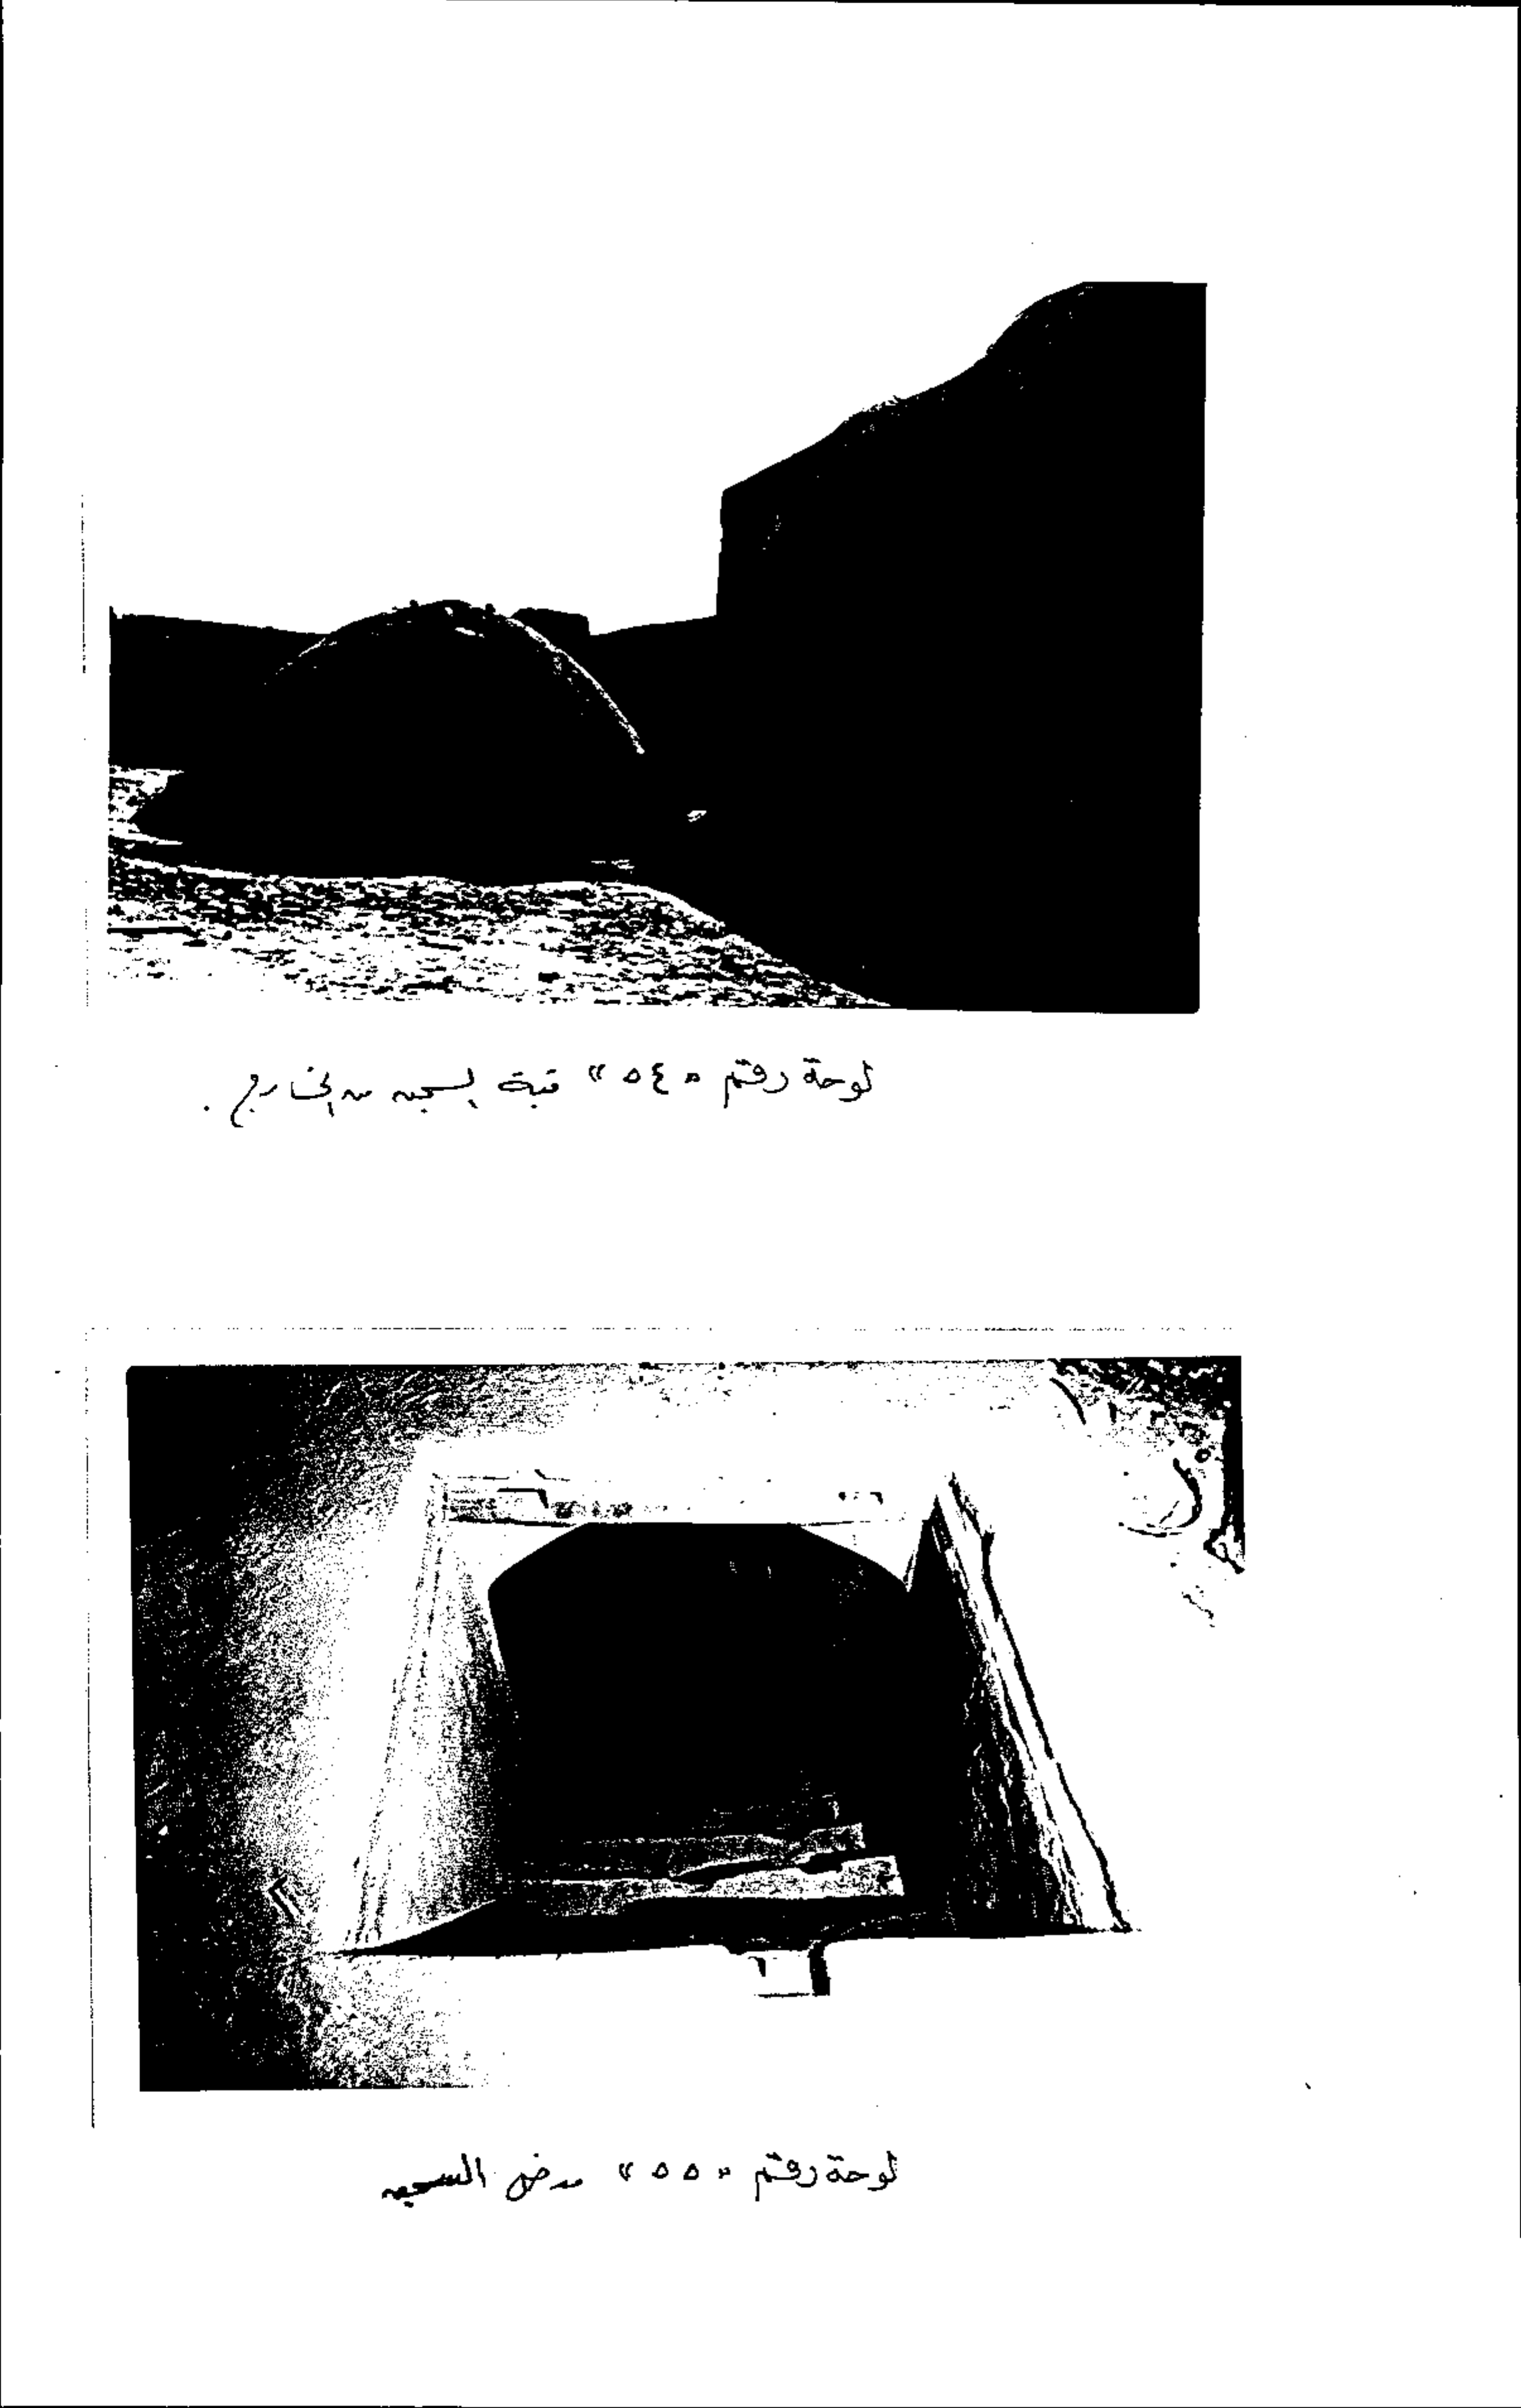 لوحة رقم «٥٤» قبة السجن من الخارج .
لوحة رقم «٥٥» مدخل السجن